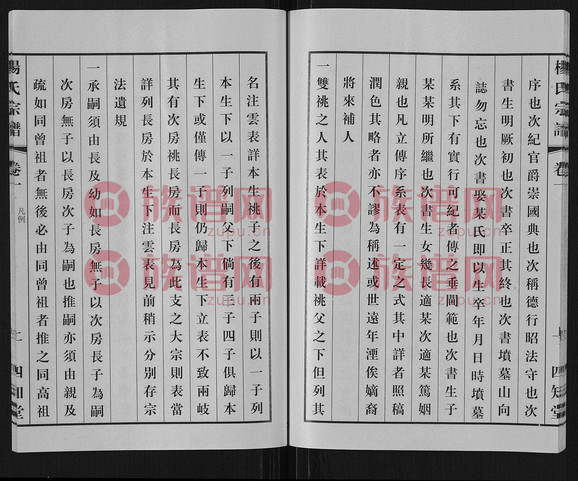 序也次紀官爵崇國典也次稱德行昭法守也次
書生明厥初也次書卒正其終也次書墳墓山向
誌勿忘也次書娶某氏即以生卒年月日時墳墓
系其下有實行可紀者傳之垂圖範也次書生子
某某明所繼也次書生女幾長適某次適某篤姻
親也凡立傳序系表有一定之式其中詳者照稿
潤色其略者亦不謬為稱述或世遠年湮俟嫡裔
將來補入
一雙祧之人其表於本生下詳載祧父之下但列其
楊氏宗譜
卷一
四知堂
名注雲表詳本生祧子之後有兩子則以一子列
本生下以一子列嗣父下倘有三子四子俱歸本
生下或僅傳一子則仍歸本生下立表不致兩岐
其有次房祧長房而長房為此支之大宗則表當
詳列長房於本生下注雲表見前稍示分別存宗
法遺規
一承嗣須由長及幼如長房無子以次房長子為嗣
次房無子以長房次子為嗣也推嗣亦須由親及
疏如同曾祖者無後必由同曾祖者推之同高祖
楊氏宗譜
卷一
凡例
二
四知堂
族谱网
族谱网
族谱网
族谱网
族谱网
族谱网